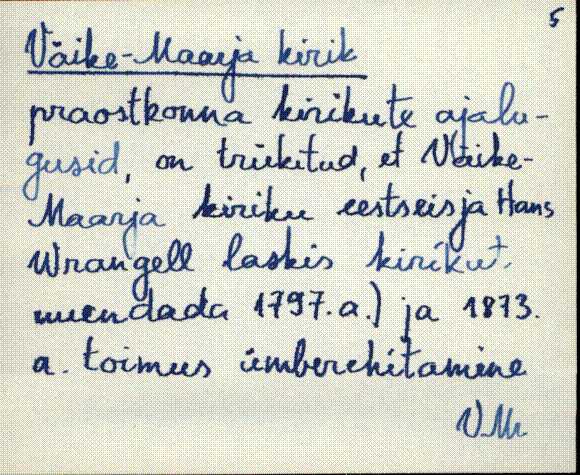 5
Väike-Maarja kirik
praostkonna kirikute ajalu-
gusid, on trükitud, et Väike-
Maarja kiriku eestseisja Hans
Wrangell laskis kirikut
muendada 1797.a.) ja 1873.
a. toimus ümberehitamine
V.M.